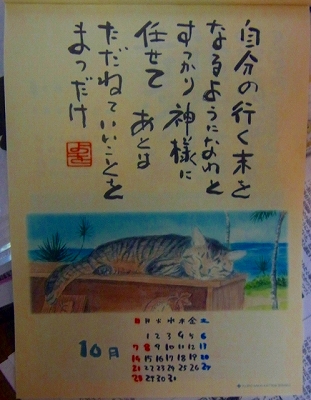 自分の行く末を
なるようになれと
すっかり神様に
任せて あとは
ただねていいことを
まつだけ
10月
日 月 火 水 木 金 土
1 2 3 4 5 6
7 8 9 10 11 12 13
14 15 16 17 18 19 20
21 22 23 24 25 26 27
28 29 30 31